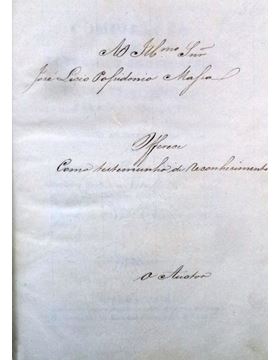 Ao Illmo Snr
José Lucio Possidonio Mafra
Offerece
Como testemunho de reconhecimento
o Auctor